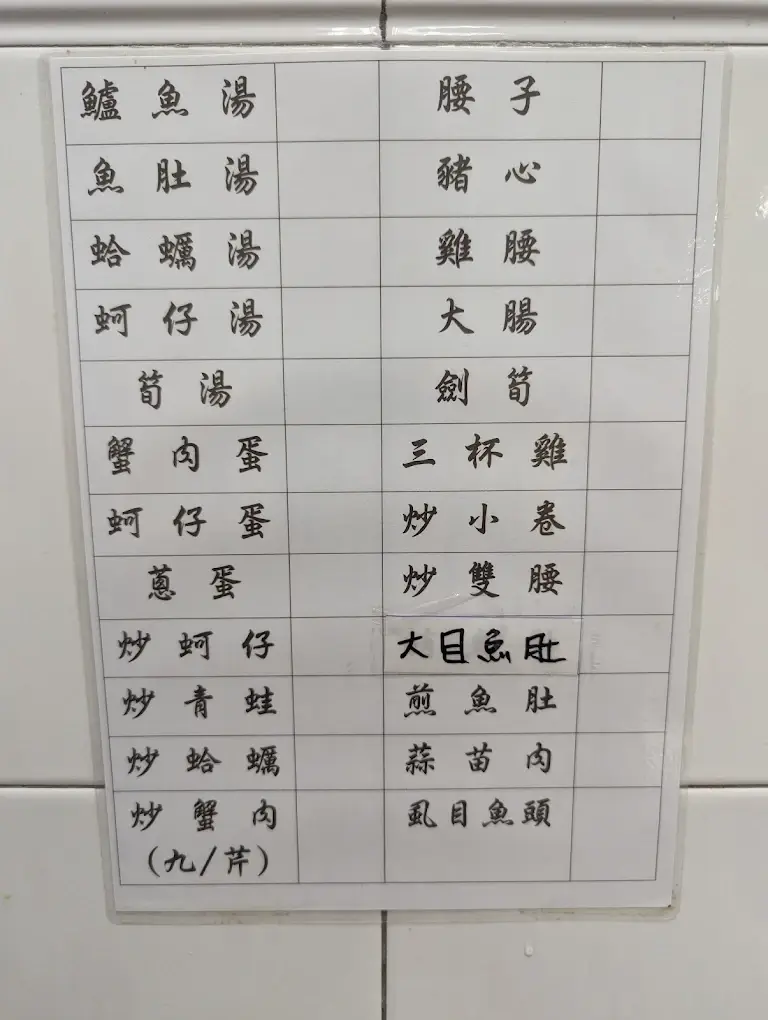 鱸魚湯
腰子
魚肚湯
豬心
蛤蠣湯
雞腰
蚵仔湯
大腸
筍湯
劍筍
蟹肉蛋
三杯雞
蚵仔蛋
炒小卷
蔥蛋
炒雙腰
炒蚵仔
大目魚肚
炒青蛙
煎魚肚
炒蛤蠣
蒜苗肉
炒蟹肉
(九/芹)
虱目魚頭